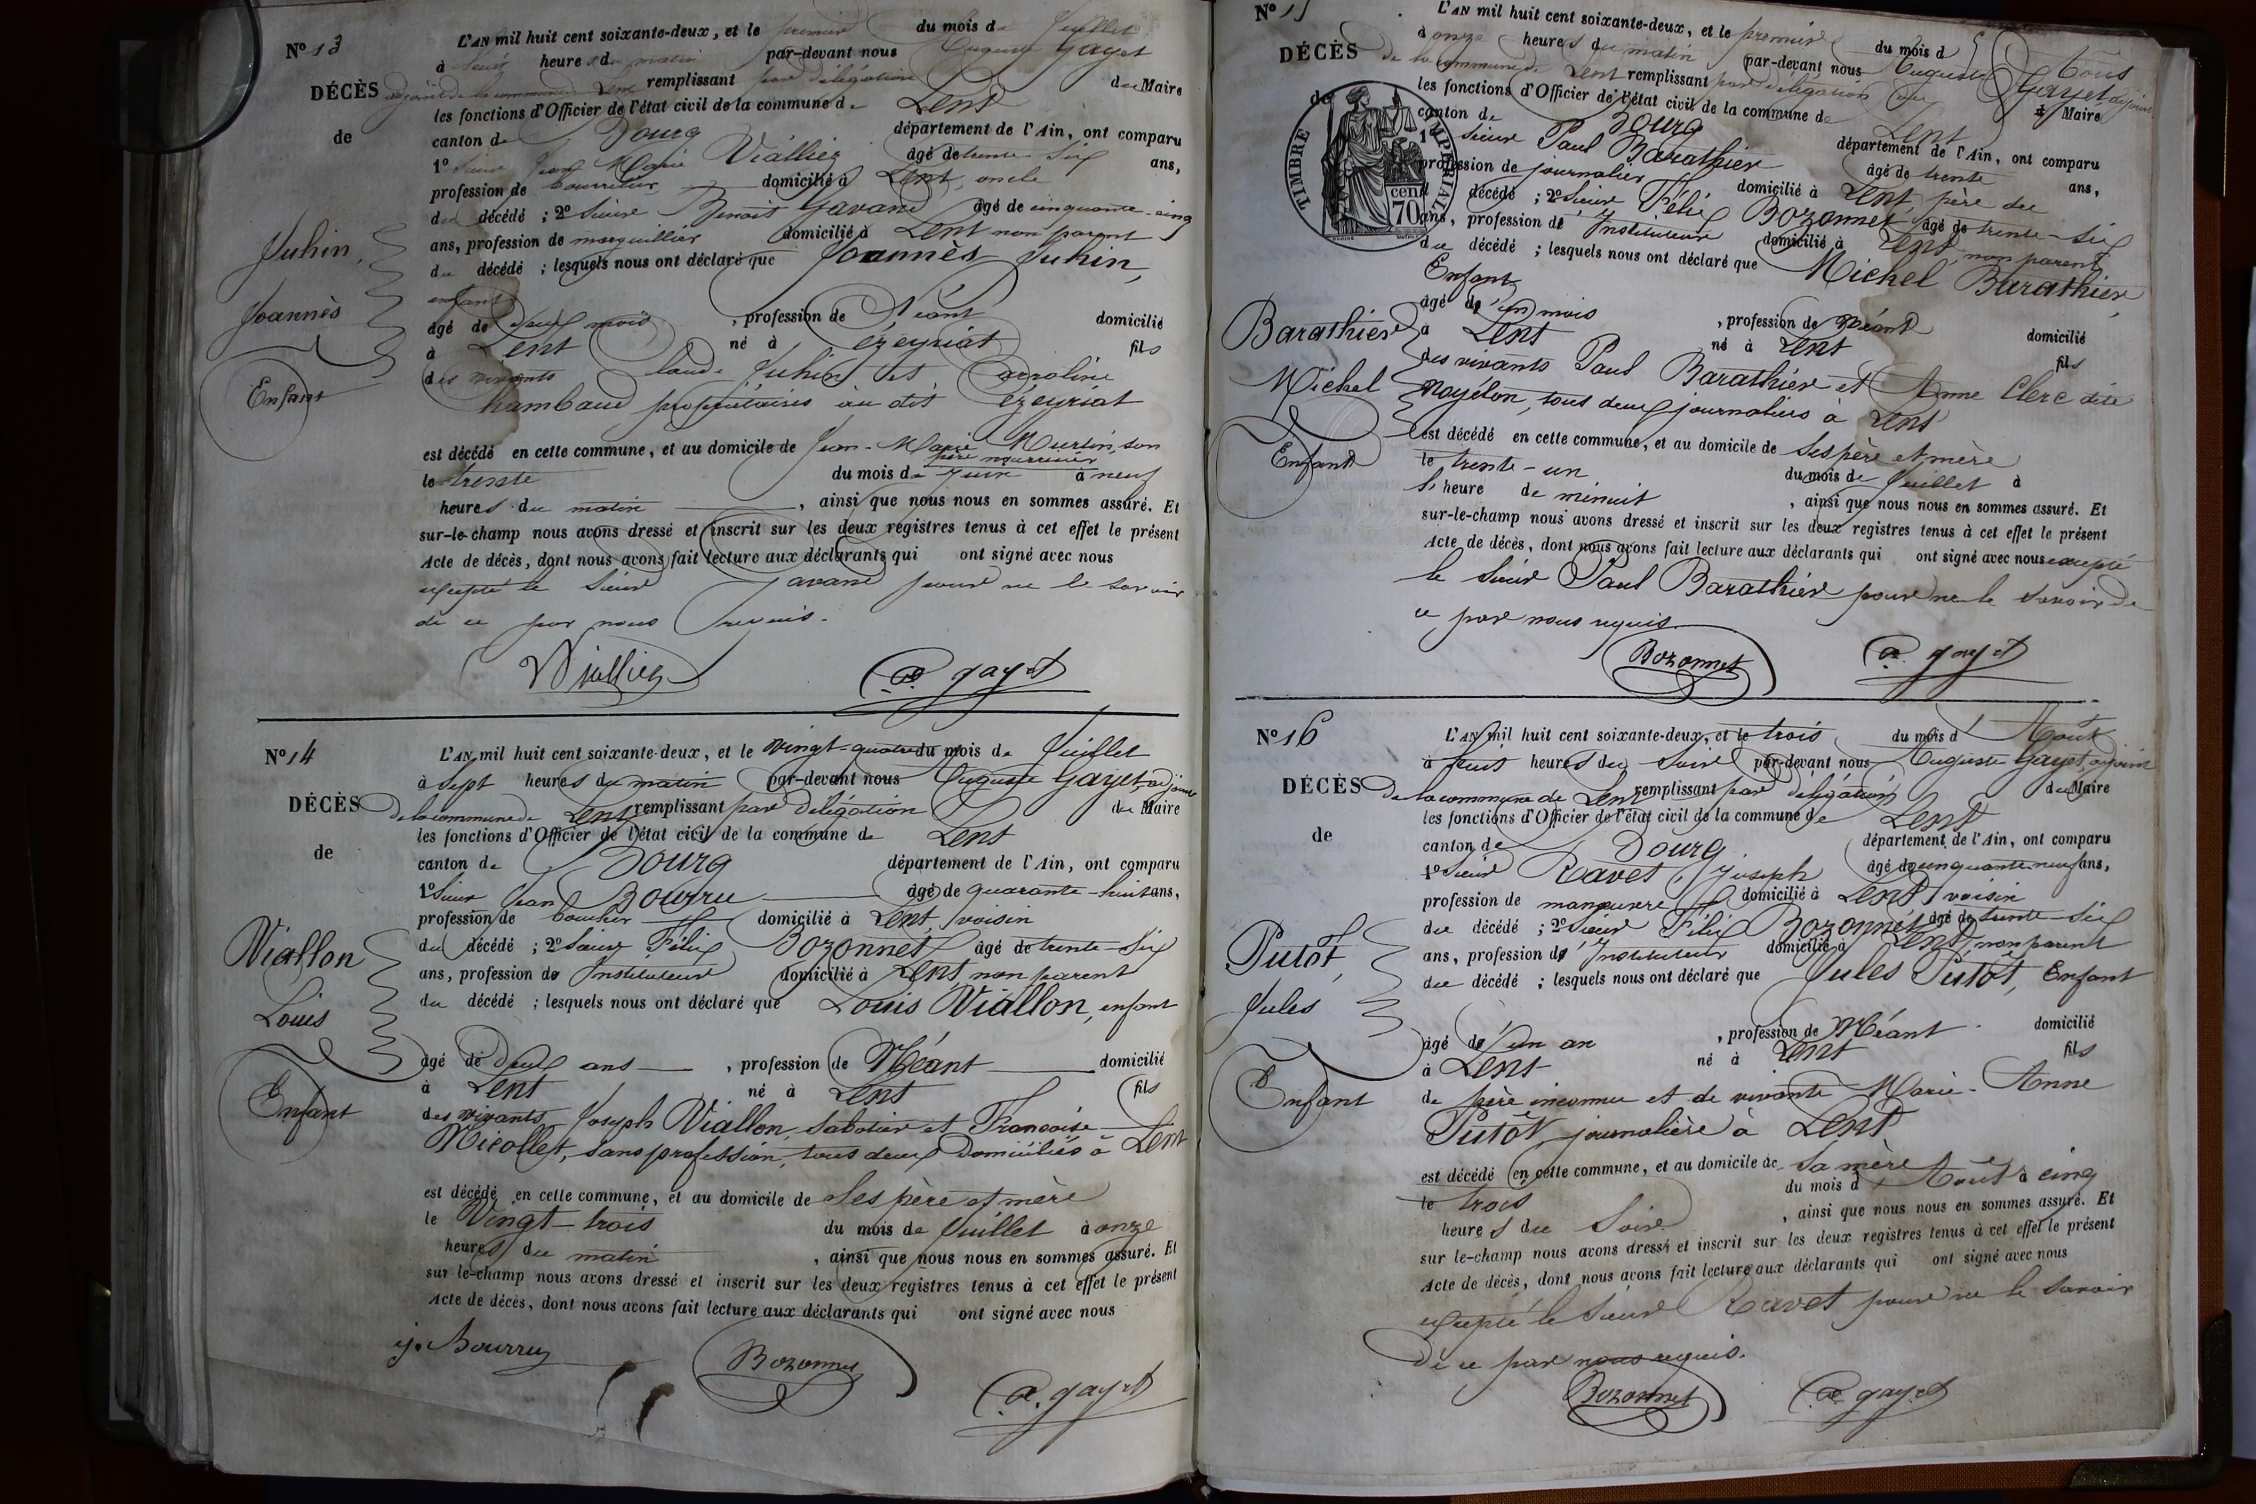 N° 13
L'AN mil huit cent soixante-deux, et le premier du mois de Juillet
à heures du matin par-devant nous Auguste Gayet
adjoint de la commune de Lent remplissant par délégation du Maire
DÉCÈS
les fonctions d'Officier de l'état civil de la commune de Lent
de
canton de Bourg département de l'Ain, ont comparu
1° Sieur Jean Marie Viallier âgé de trente six ans,
profession de bourrelier domicilié à Lent, oncle
du décédé ; 2° Sieur Benoit Gavand âgé de cinquante-cinq
ans, profession de marguillier domicilié à Lent non parent
du décédé ; lesquels nous ont déclaré que Joannès Juhin,
enfant
Juhin,
Joannès
Enfant
âgé de deux mois, profession de Néant domicilié
à Lent né à Ceyzeriat fils
des vivants Claude Juhin et Caroline
Chambaud propriétaires au dit Ceyzeriat
est décédé en cette commune, et au domicile de Jean-Marie Murtin, son
père nourricier
le trente du mois de Juin à neuf
heures du matin, ainsi que nous nous en sommes assuré. Et
sur-le-champ nous avons dressé et inscrit sur les deux registres tenus à cet effet le présent
Acte de décès, dont nous avons fait lecture aux déclarants qui ont signé avec nous
excepté le Sieur Gavand pour ne le savoir
de ce par nous requis.
Viallier a. gayet
N° 14
L'AN mil huit cent soixante-deux, et le vingt-quatre du mois de Juillet
à Sept heures du matin par-devant nous Auguste Gayet, adjoint
DÉCÈS
de la commune de Lent remplissant par délégation du Maire
les fonctions d'Officier de l'état civil de la commune de Lent
de
canton de Bourg département de l'Ain, ont comparu
1° Sieur Jean Bourru âgé de quarante-huit ans,
profession de boucher domicilié à Lent, voisin
du décédé ; 2° Sieur Félix Bozonnet âgé de trente-six
ans, profession de Instituteur domicilié à Lent non parent
du décédé ; lesquels nous ont déclaré que Louis Viallon, enfant
Viallon
Louis
Enfant
âgé de deux ans, profession de Néant domicilié
à Lent né à Lent fils
des vivants Joseph Viallon, sabotier et Françoise
Nicollet, sans profession, tous deux domiciliés à Lent
est décédé en cette commune, et au domicile de Ses père et mère
le Vingt-trois du mois de Juillet à onze
heures du matin, ainsi que nous nous en sommes assuré. Et
sur le-champ nous avons dressé et inscrit sur les deux registres tenus à cet effet le présent
Acte de décès, dont nous avons fait lecture aux déclarants qui ont signé avec nous
j. Bourru Bozonnet a. gayet
N° 15
L'AN mil huit cent soixante-deux, et le premier du mois d'Août
à onze heures du matin par-devant nous Auguste Gayet adjoint
DÉCÈS
de la commune de Lent remplissant par délégation du Maire
les fonctions d'Officier de l'état civil de la commune de Lent
de
canton de Bourg département de l'Ain, ont comparu
TIMBRE IMPÉRIAL
cen
70
1° Sieur Paul Barathier âgé de trente ans,
profession de journalier domicilié à Lent, père du
décédé ; 2° Sieur Félix Bozonnet âgé de trente-six
ans, profession de Instituteur domicilié à Lent, non parent
du décédé ; lesquels nous ont déclaré que Michel Barathier,
Enfant
Barathier
Michel
Enfant
âgé de un mois, profession de Néant domicilié
à Lent né à Lent fils
des vivants Paul Barathier et Anne Clerc dite
Noyélon, tous deux journaliers à Lent
est décédé en cette commune, et au domicile de Ses père et mère
le trente-un du mois de Juillet à
l'heure de minuit, ainsi que nous nous en sommes assuré. Et
sur-le-champ nous avons dressé et inscrit sur les deux registres tenus à cet effet le présent
Acte de décès, dont nous avons fait lecture aux déclarants qui ont signé avec nous excepté
le Sieur Paul Barathier pour ne le savoir de
ce par nous requis.
Bozonnet a. gayet
N° 16
L'AN mil huit cent soixante-deux, et le trois du mois d'Août
à huit heures du Soir par-devant nous Auguste Gayet, adjoint
DÉCÈS
de la commune de Lent remplissant par délégation du Maire
les fonctions d'Officier de l'état civil de la commune de Lent
de
canton de Bourg département de l'Ain, ont comparu
1° Sieur Ravet, Joseph âgé de cinquante-neuf ans,
profession de manœuvre domicilié à Lent, voisin
du décédé ; 2° Sieur Félix Bozonnet âgé de trente-six
ans, profession d'Instituteur domicilié à Lent, non parent
du décédé ; lesquels nous ont déclaré que Jules Putôt, Enfant
Putôt,
Jules
Enfant
âgé de un an, profession de Néant domicilié
à Lent né à Lent fils
de père inconnu et de vivante Marie-Anne
Putôt, journalière à Lent
est décédé en cette commune, et au domicile de Sa mère
le trois du mois d'Août à cinq
heures du Soir, ainsi que nous nous en sommes assuré. Et
sur le-champ nous avons dressé et inscrit sur les deux registres tenus à cet effet le présent
Acte de décès, dont nous avons fait lecture aux déclarants qui ont signé avec nous
excepté le Sieur Ravet pour ne le savoir
de ce par nous requis.
Bozonnet a. gayet